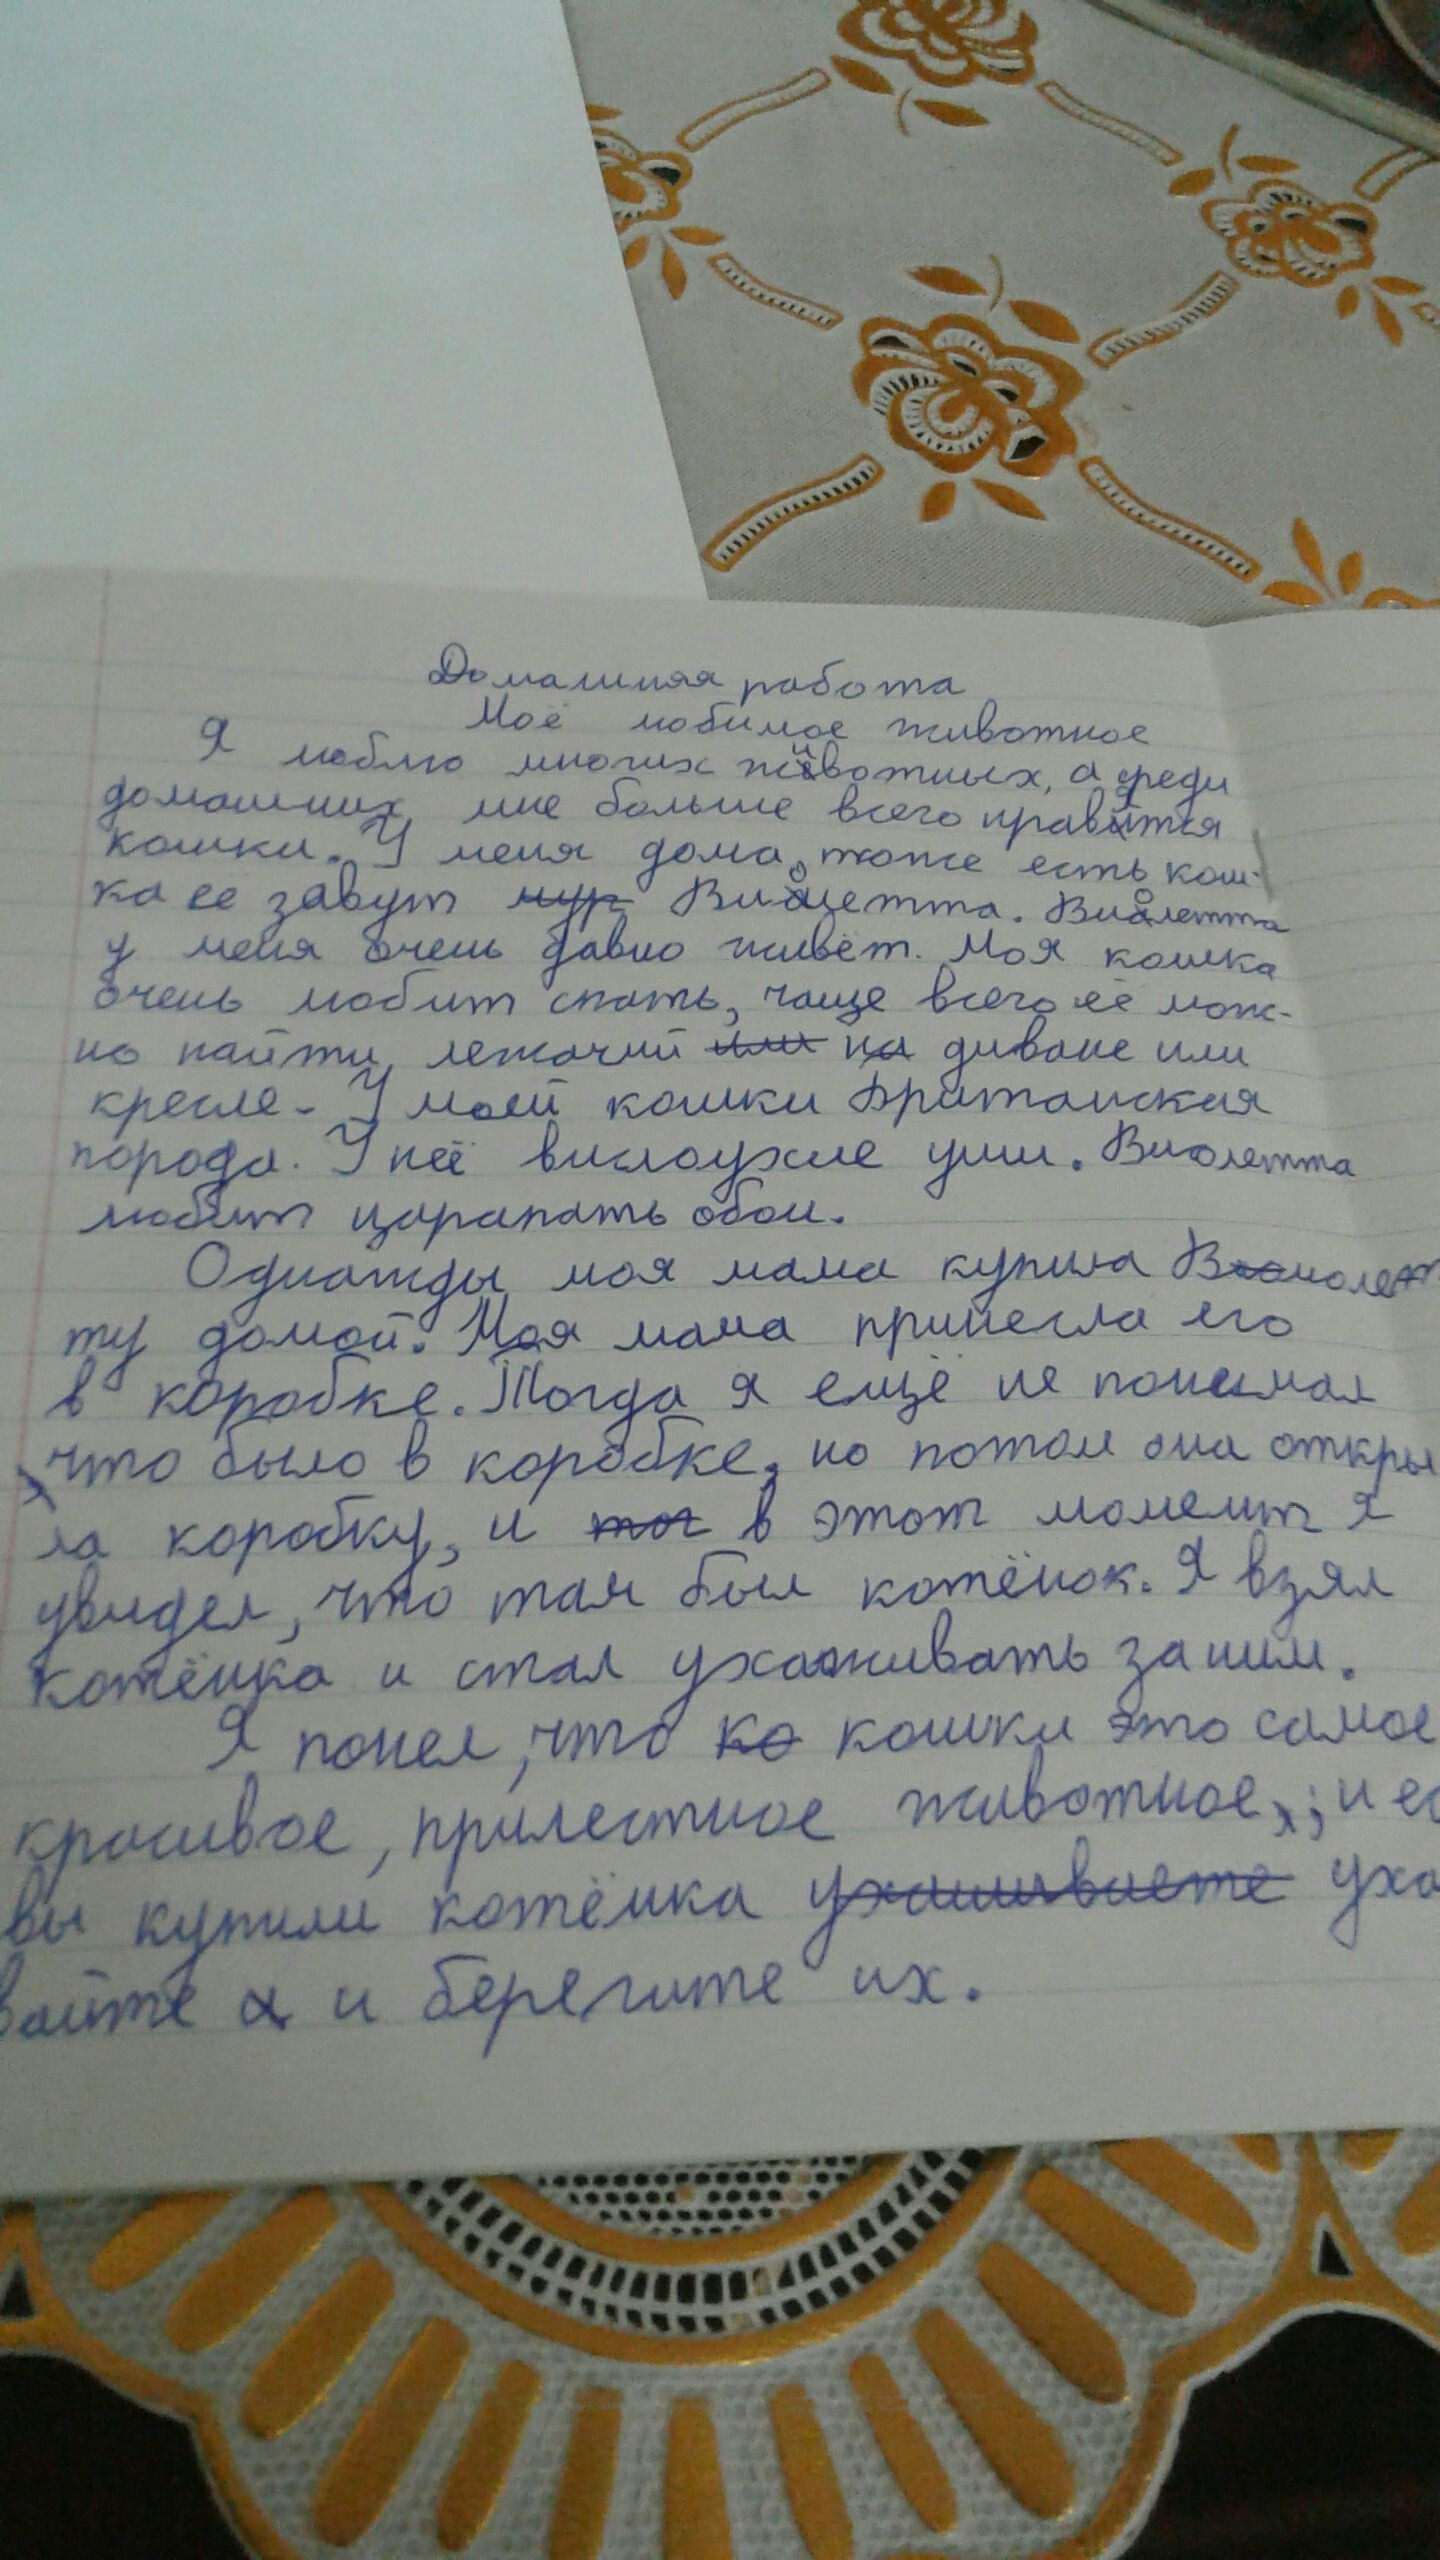 Домашняя работа
Моё любимое животное
Я люблю многих животных, а среди
домашних мне больше всего нравятся
кошки. У меня дома, тоже есть кош-
ка ее завут Виолетта. Виолетта
у меня очень давно живёт. Моя кошка
очень любит спать, чаще всего её мож-
но найти лежачий на диване или
кресле. У моей кошки Британская
порода. У неё вислоухие уши. Виолетта
любит царапать обои.
Однажды моя мама купила Виолет
ту домой. Моя мама принесла его
в коробке. Тогда я ещё не понимал
что было в коробке, но потом она откры
ла коробку, и в этот момент я
увидел, что там был котёнок. Я взял
котёнка и стал ухаживать за ним.
Я понел, что кошки это самое
красивое, прилестное животное; и ес
вы купили котёнка уха
вайте и берегите их.